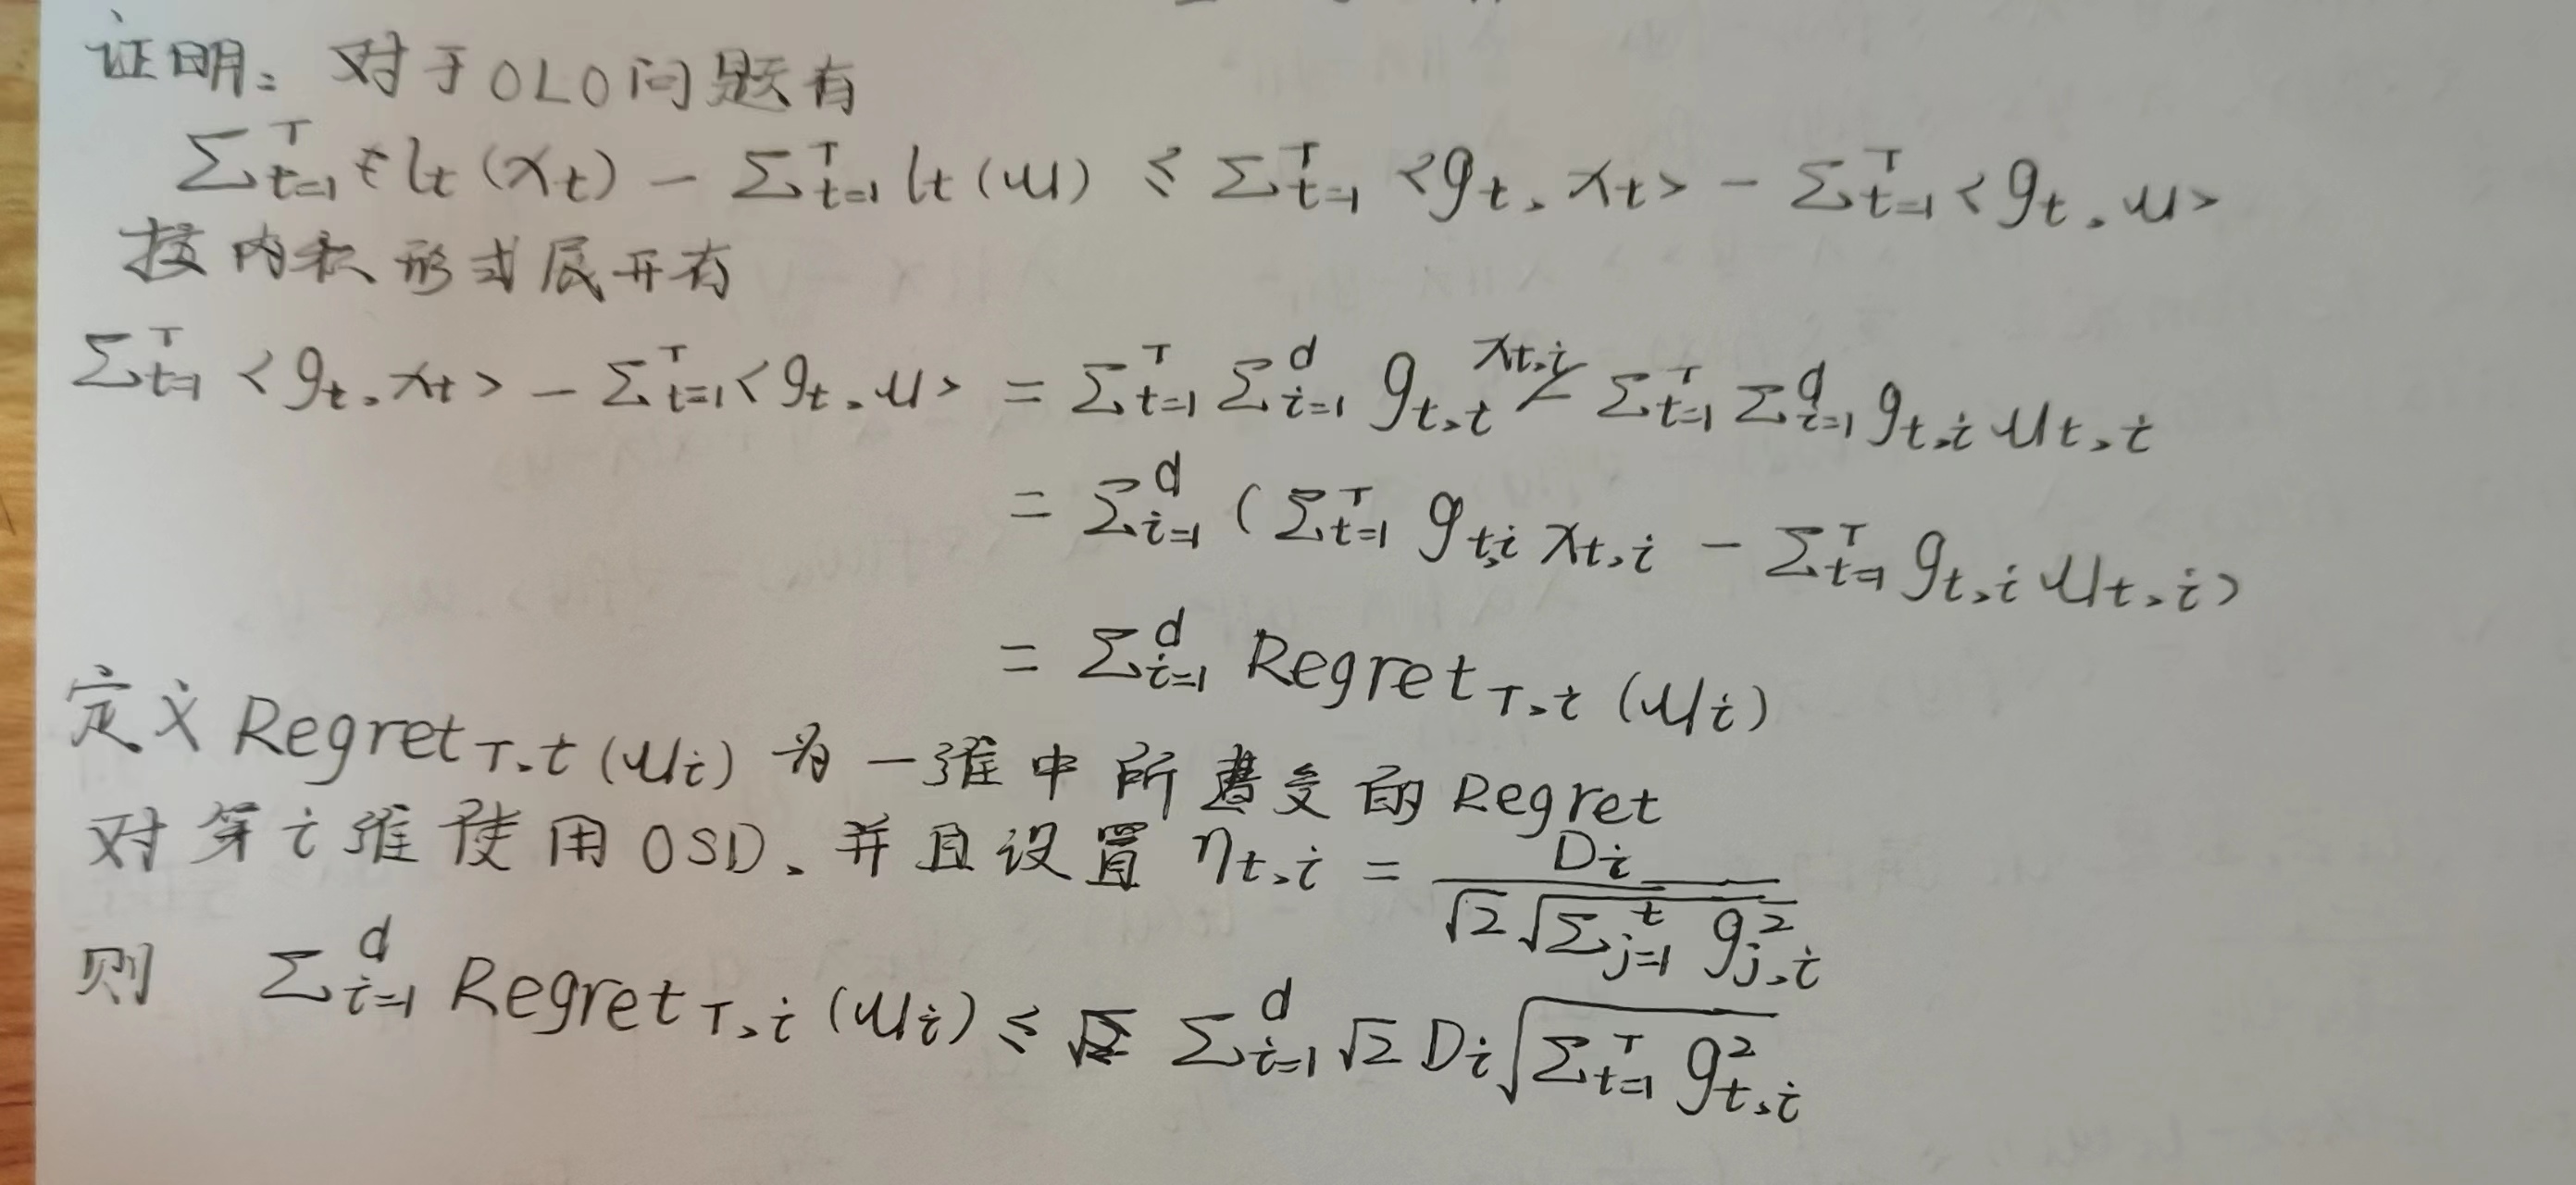 证明：对于OLO问题有
∑_{t=1}^T l_t(x_t) - ∑_{t=1}^T l_t(u) ≤ ∑_{t=1}^T <g_t, x_t> - ∑_{t=1}^T <g_t, u>
按内积形式展开有
∑_{t=1}^T <g_t, x_t> - ∑_{t=1}^T <g_t, u> = ∑_{t=1}^T ∑_{i=1}^d g_{t,t} x_{t,i} - ∑_{t=1}^T ∑_{i=1}^d g_{t,i} u_{t,i}
= ∑_{i=1}^d (∑_{t=1}^T g_{t,i} x_{t,i} - ∑_{t=1}^T g_{t,i} u_{t,i})
= ∑_{i=1}^d Regret_{T,i}(u_i)
定义 Regret_{T,t}(u_i) 为一维中所遭受的 Regret
对第i维使用OSD，并且设置 η_{t,i} = D_i / (√2 √(∑_{j=1}^t g_{j,i}^2))
则 ∑_{i=1}^d Regret_{T,i}(u_i) ≤ ∑_{i=1}^d √2 D_i √(∑_{t=1}^T g_{t,i}^2)